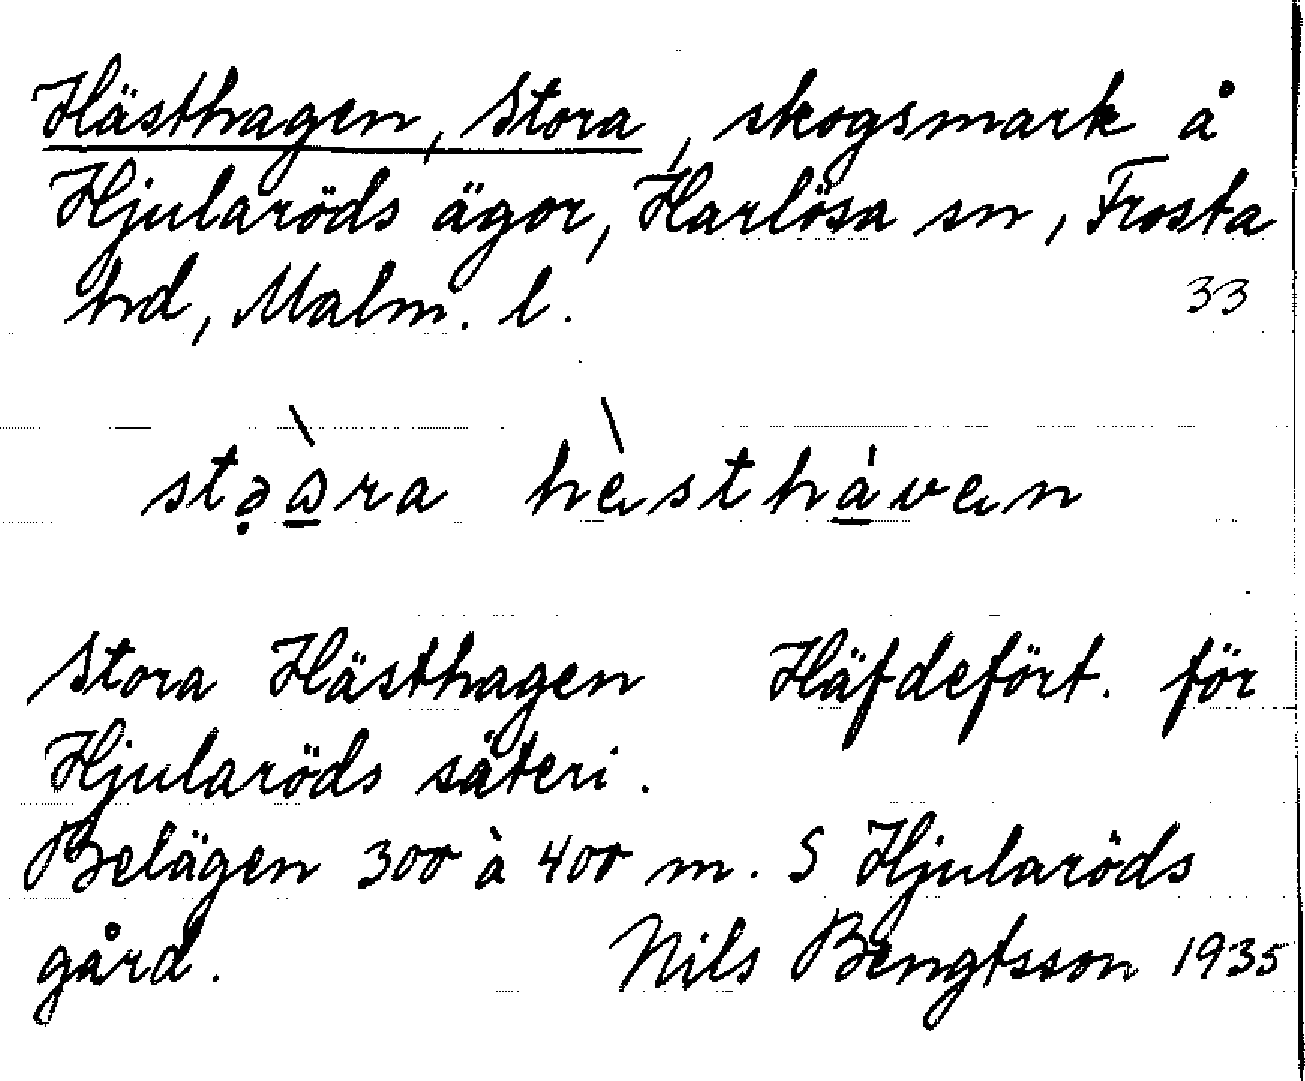 Hästhagen, Stora, skogsmark å
Hjularöds ägor, Harlösa sn, Frosta
hd, Malm. l.
33
Stora Hästhagen Häfdefört. för
Hjularöds säteri.
Belägen 300 à 400 m. S Hjularöds
gård. Nils Bengtsson 1935